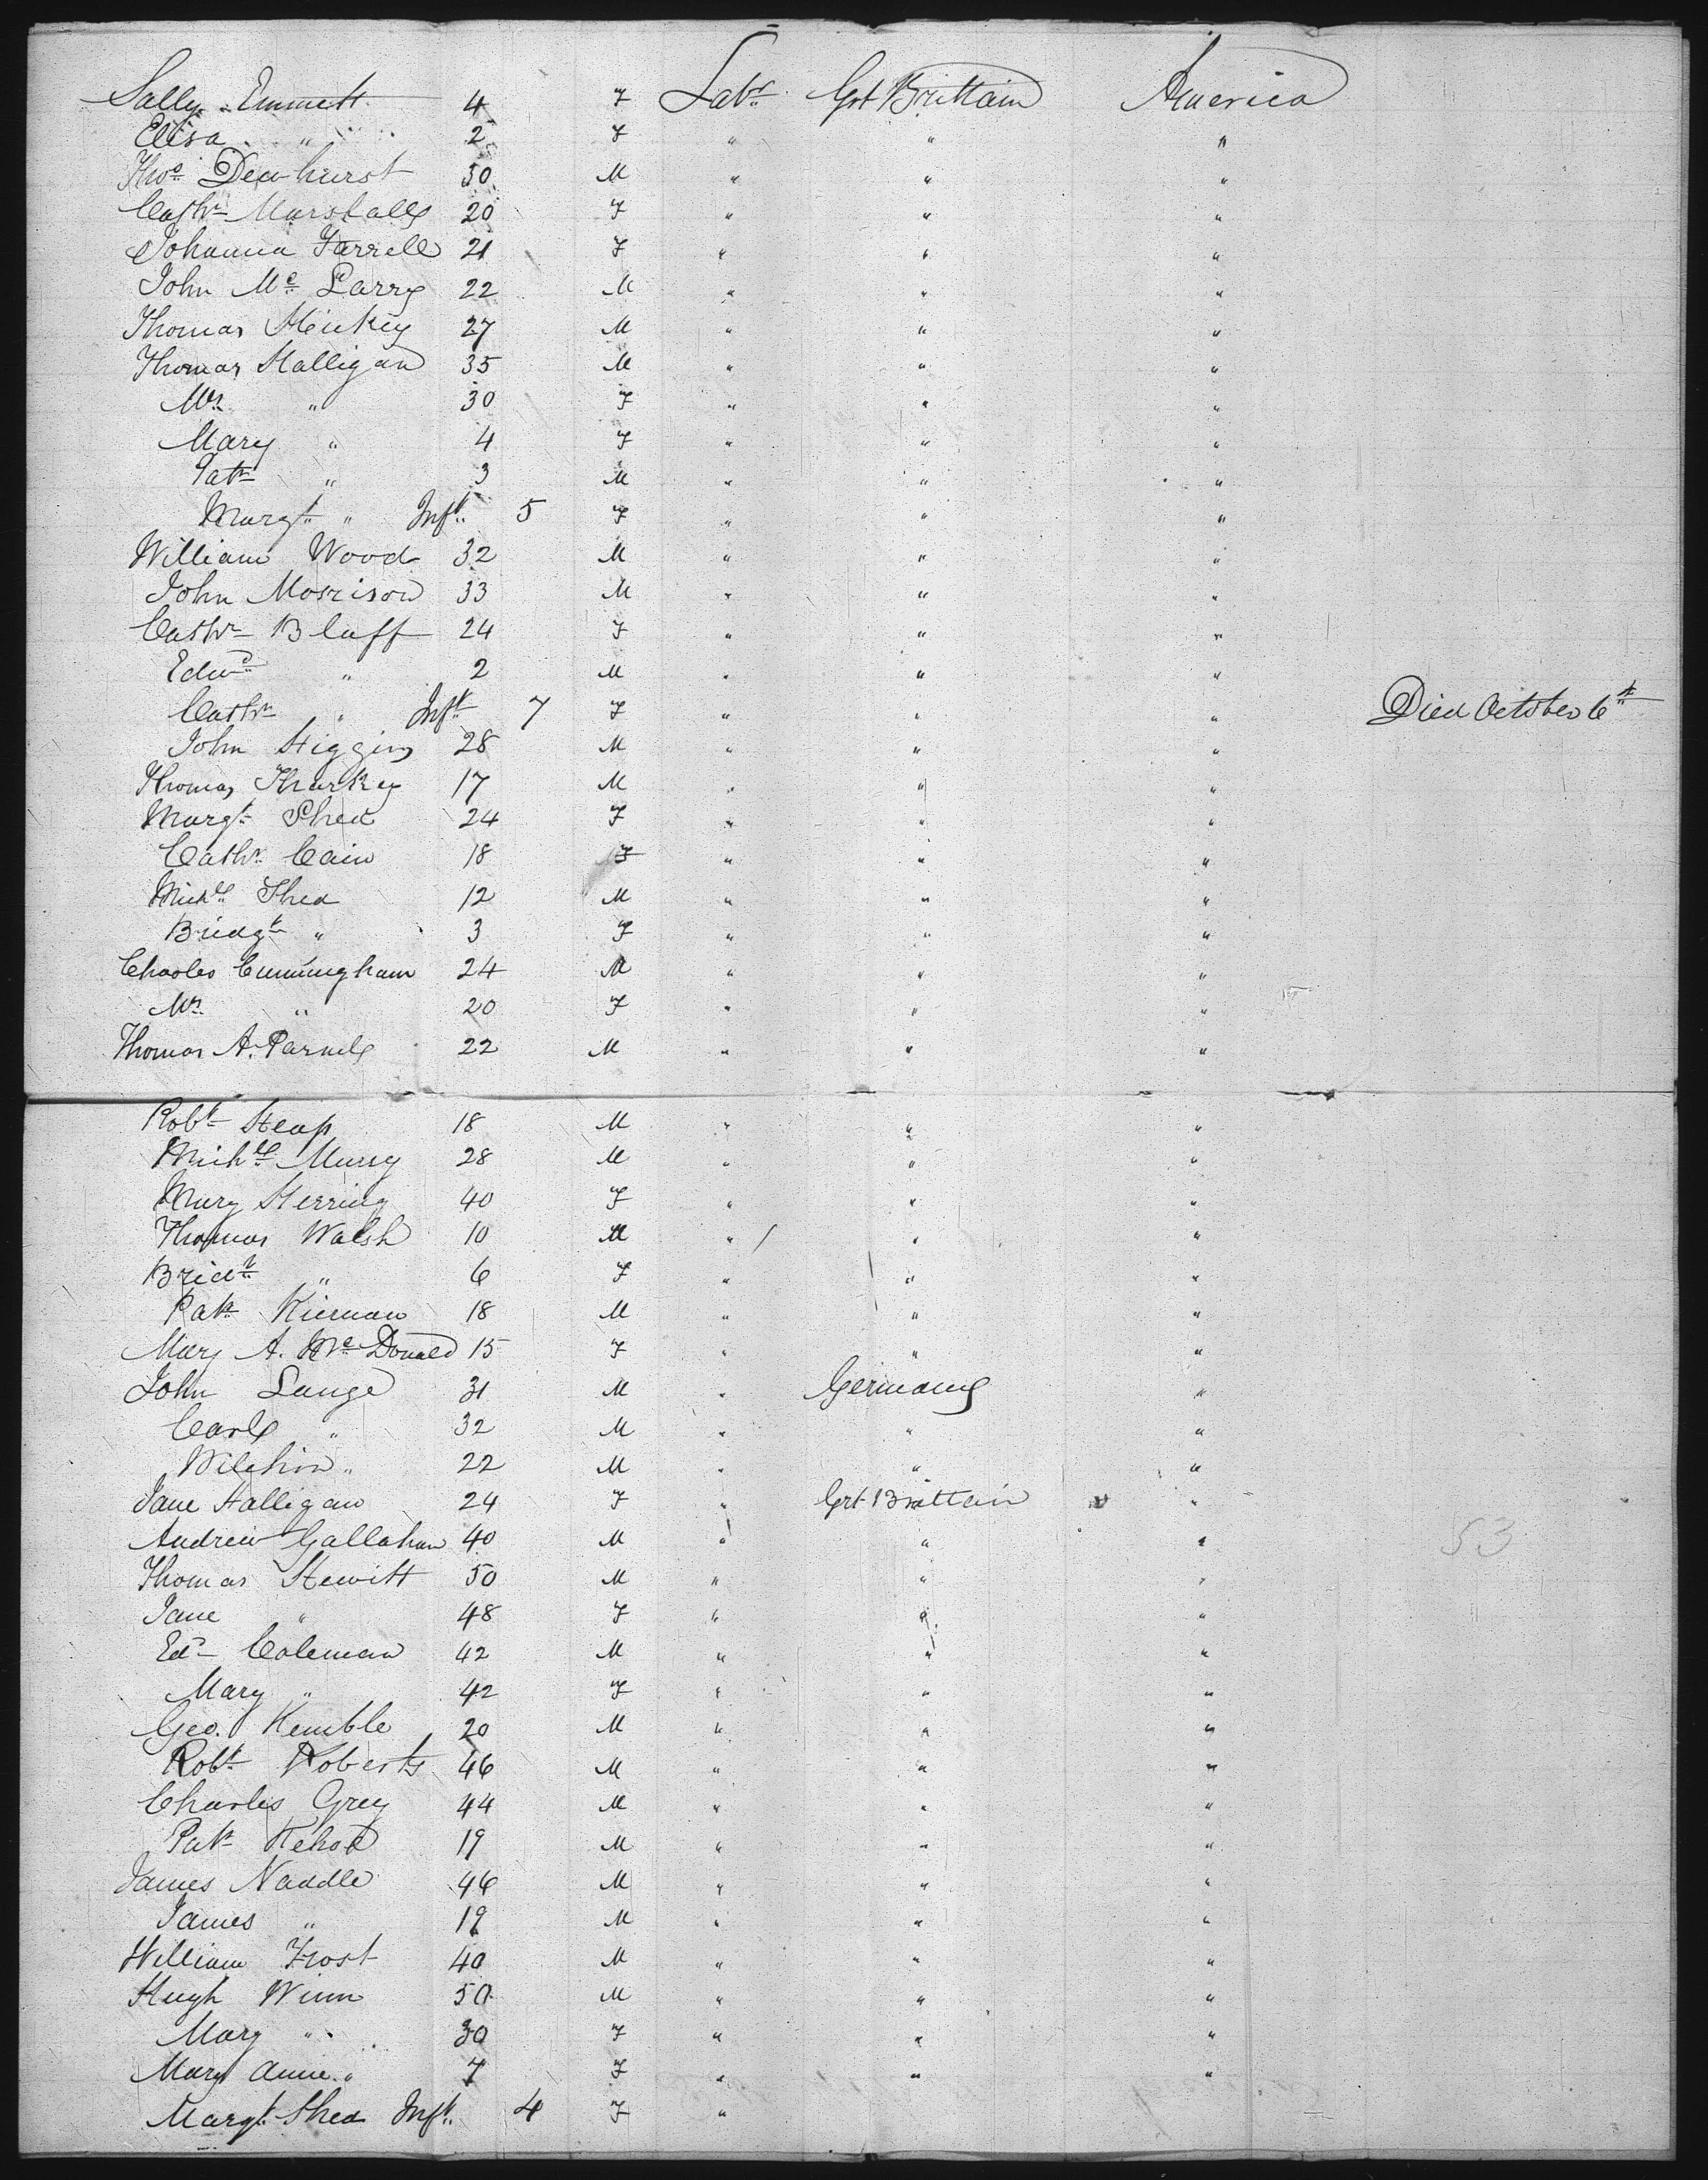 Sally Emmett 4 F Labr Grt Brittain America
Elisa " 2 F " " "
Thos Dewhurst 30 M " " "
Cathr Marshall 20 F " " "
Johanna Farrell 21 F " " "
John Mc Larry 22 M " " "
Thomas Hinkey 27 M " " "
Thomas Halligan 35 M " " "
Mrs " 30 F " " "
Mary " 4 F " " "
Patk " 3 M " " "
Margt " Inft 5 F " " "
William Wood 32 M " " "
John Morrison 33 M " " "
Cathr Bluff 24 F " " "
Edwd " 2 M " " "
Cathr " Inft 7 F " " " Died October 6th
John Higgins 28 M " " "
Thomas Sharkey 17 M " " "
Margt Shea 24 F " " "
Cathr Cain 18 F " " "
Michl Shea 12 M " " "
Bridgt " 3 F " " "
Charles Cunningham 24 M " " "
Mrs " 20 F " " "
Thomas A. Parnell 22 M " " "
Robt Heap 18 M " " "
Michl Murry 28 M " " "
Mary Herring 40 F " " "
Thomas Walsh 10 M " " "
Bridt " 6 F " " "
Patk Kiernan 18 M " " "
Mary A. Mc Donald 15 F " " "
John Lange 31 M " Germany "
Carl " 32 M " " "
Wilehim " 22 M " " "
Jane Halligan 24 F " Grt Brittain "
Andrew Gallahan 40 M " " "
53
Thomas Hewitt 50 M " " "
Jane " 48 F " " "
Ed Coleman 42 M " " "
Mary " 42 F " " "
Geo. Kemble 20 M " " "
Robt Roberts 46 M " " "
Charles Grey 44 M " " "
Patk Kehoe 19 M " " "
James Naddle 46 M " " "
James " 19 M " " "
William Frost 40 M " " "
Hugh Winn 50 M " " "
Mary " 30 F " " "
Mary Anne " 7 F " " "
Margt Shea Inft 4 F "